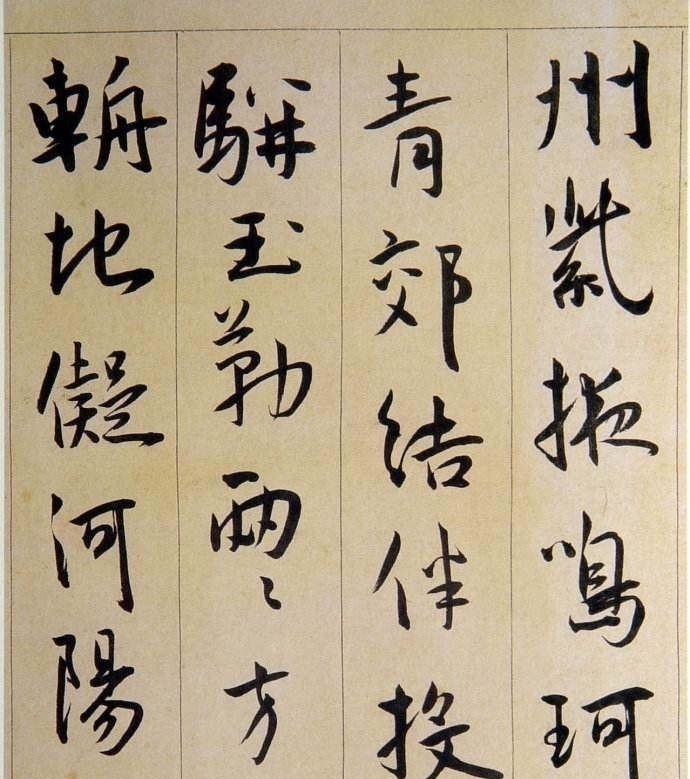 州紫掖鳴珂
青郊結伴投
駢玉勒兩〻方
輈地儗河陽